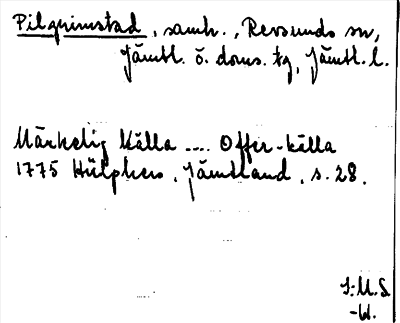 Pilgrimstad, samh., Revsunds sn,
Jämtl. ö. doms. tg, Jämtl. l.
Märkelig Källa .... Offer-källa
1775 Hülphers, Jämtland, s. 28.
I:M.S.
-W.